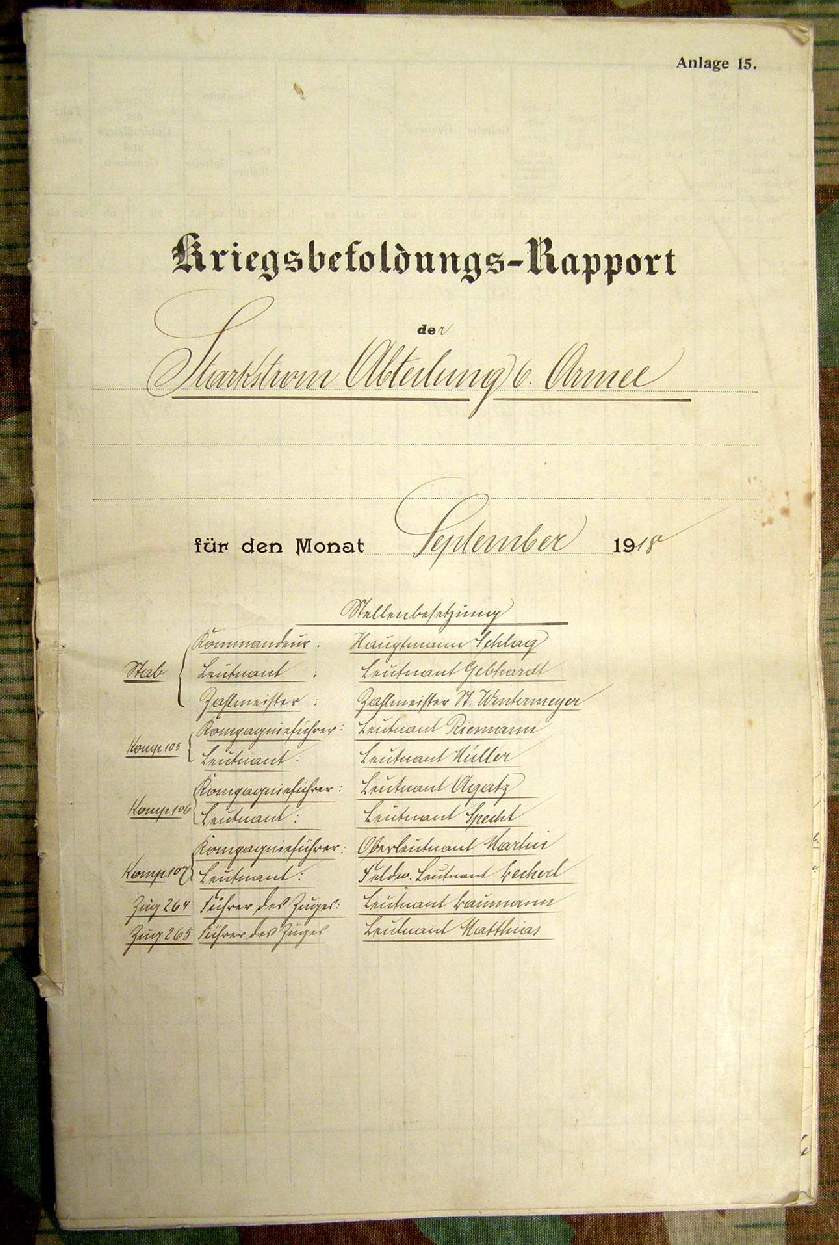 Anlage 15.
Kriegsbesoldungs-Rapport
der
Starkstrom Abteilung 6. Armee
für den Monat September 1918
Stellenbesetzung
Stab Kommandeur: Hauptmann Schlag
Leutnant : Leutnant Gebhardt
Zahlmeister : Zahlmeister St. Wintermeyer
Komp. 105 Kompagnieführer: Leutnant Riemann
Leutnant: Leutnant Müller
Komp. 106 Kompagnieführer: Leutnant
Leutnant: Leutnant Specht
Komp. 107 Kompagnieführer: Oberleutnant Martin
Leutnant: Feldw. Leutnant
Zug 264 Führer des Zuges: Leutnant Baumann
Zug 265 Führer des Zuges Leutnant Matthias